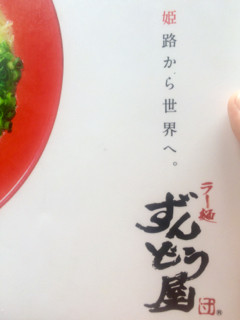 姫路から世界へ。
ラー麺
ずんどう屋
団
®